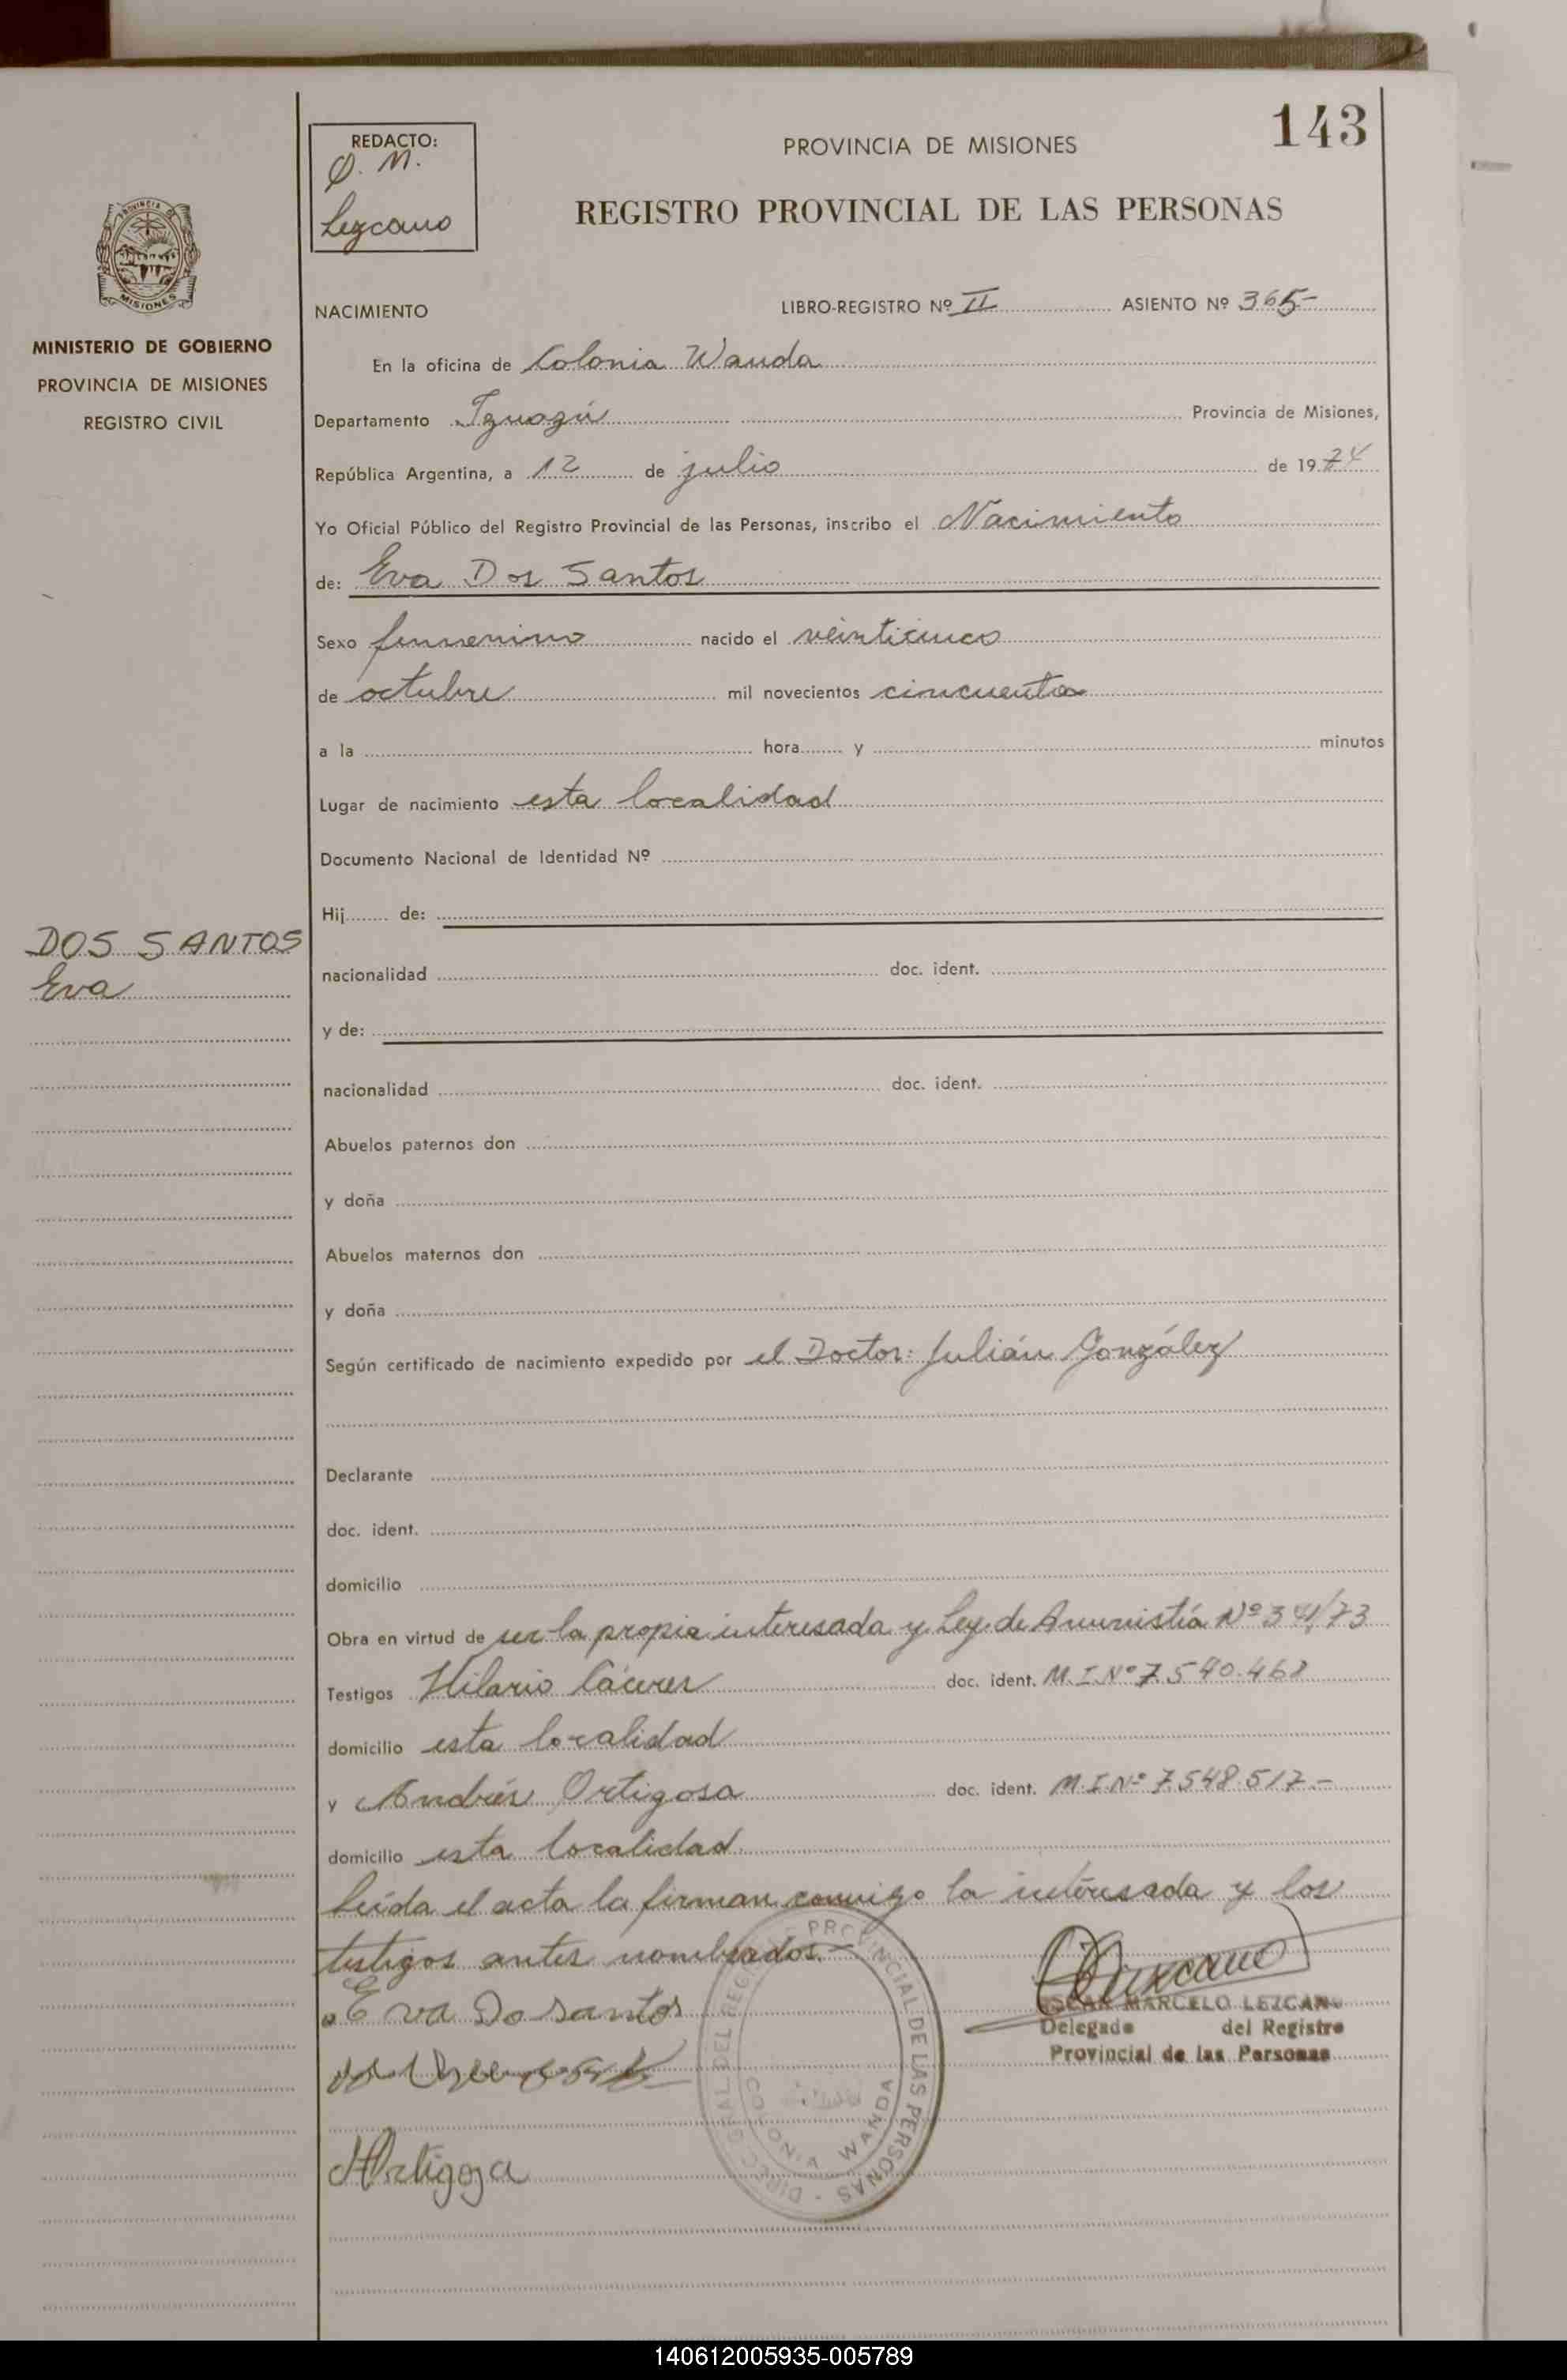 143
REDACTO:
O. M.
Lezcano
PROVINCIA DE MISIONES
REGISTRO PROVINCIAL DE LAS PERSONAS
MISIONES
MINISTERIO DE GOBIERNO
PROVINCIA DE MISIONES
REGISTRO CIVIL
NACIMIENTO LIBRO-REGISTRO Nº II ASIENTO Nº 365-
En la oficina de Colonia Wanda
Departamento Iguazú Provincia de Misiones,
República Argentina, a 12 de julio de 1974
Yo Oficial Público del Registro Provincial de las Personas, inscribo el Nacimiento
de: Eva Dos Santos
Sexo femenino nacido el veinticinco
de octubre mil novecientos cincuenta
a la hora y minutos
Lugar de nacimiento esta localidad
Documento Nacional de Identidad Nº
Hij de:
DOS SANTOS
Eva
nacionalidad doc. ident.
y de:
nacionalidad doc. ident.
Abuelos paternos don
y doña
Abuelos maternos don
y doña
Según certificado de nacimiento expedido por el Doctor: Julián González
Declarante
doc. ident.
domicilio
Obra en virtud de ser la propia interesada y Ley de Amnistía Nº 341/73
Testigos Hilario Cáceres doc. ident. M.I.Nº 7.540.468
domicilio esta localidad
y Andrés Ortigosa doc. ident. M.I.Nº 7.548.517.-
domicilio esta localidad
Leída el acta la firman conmigo la interesada y los
testigos antes nombrados.-
Eva Do santos
OSCAR MARCELO LEZCANO
Delegado del Registro
Provincial de las Personas
DIREC. GRAL DEL REGISTRO PROVINCIAL DE LAS PERSONAS
COLONIA WANDA
AOrtigoza
140612005935-005789